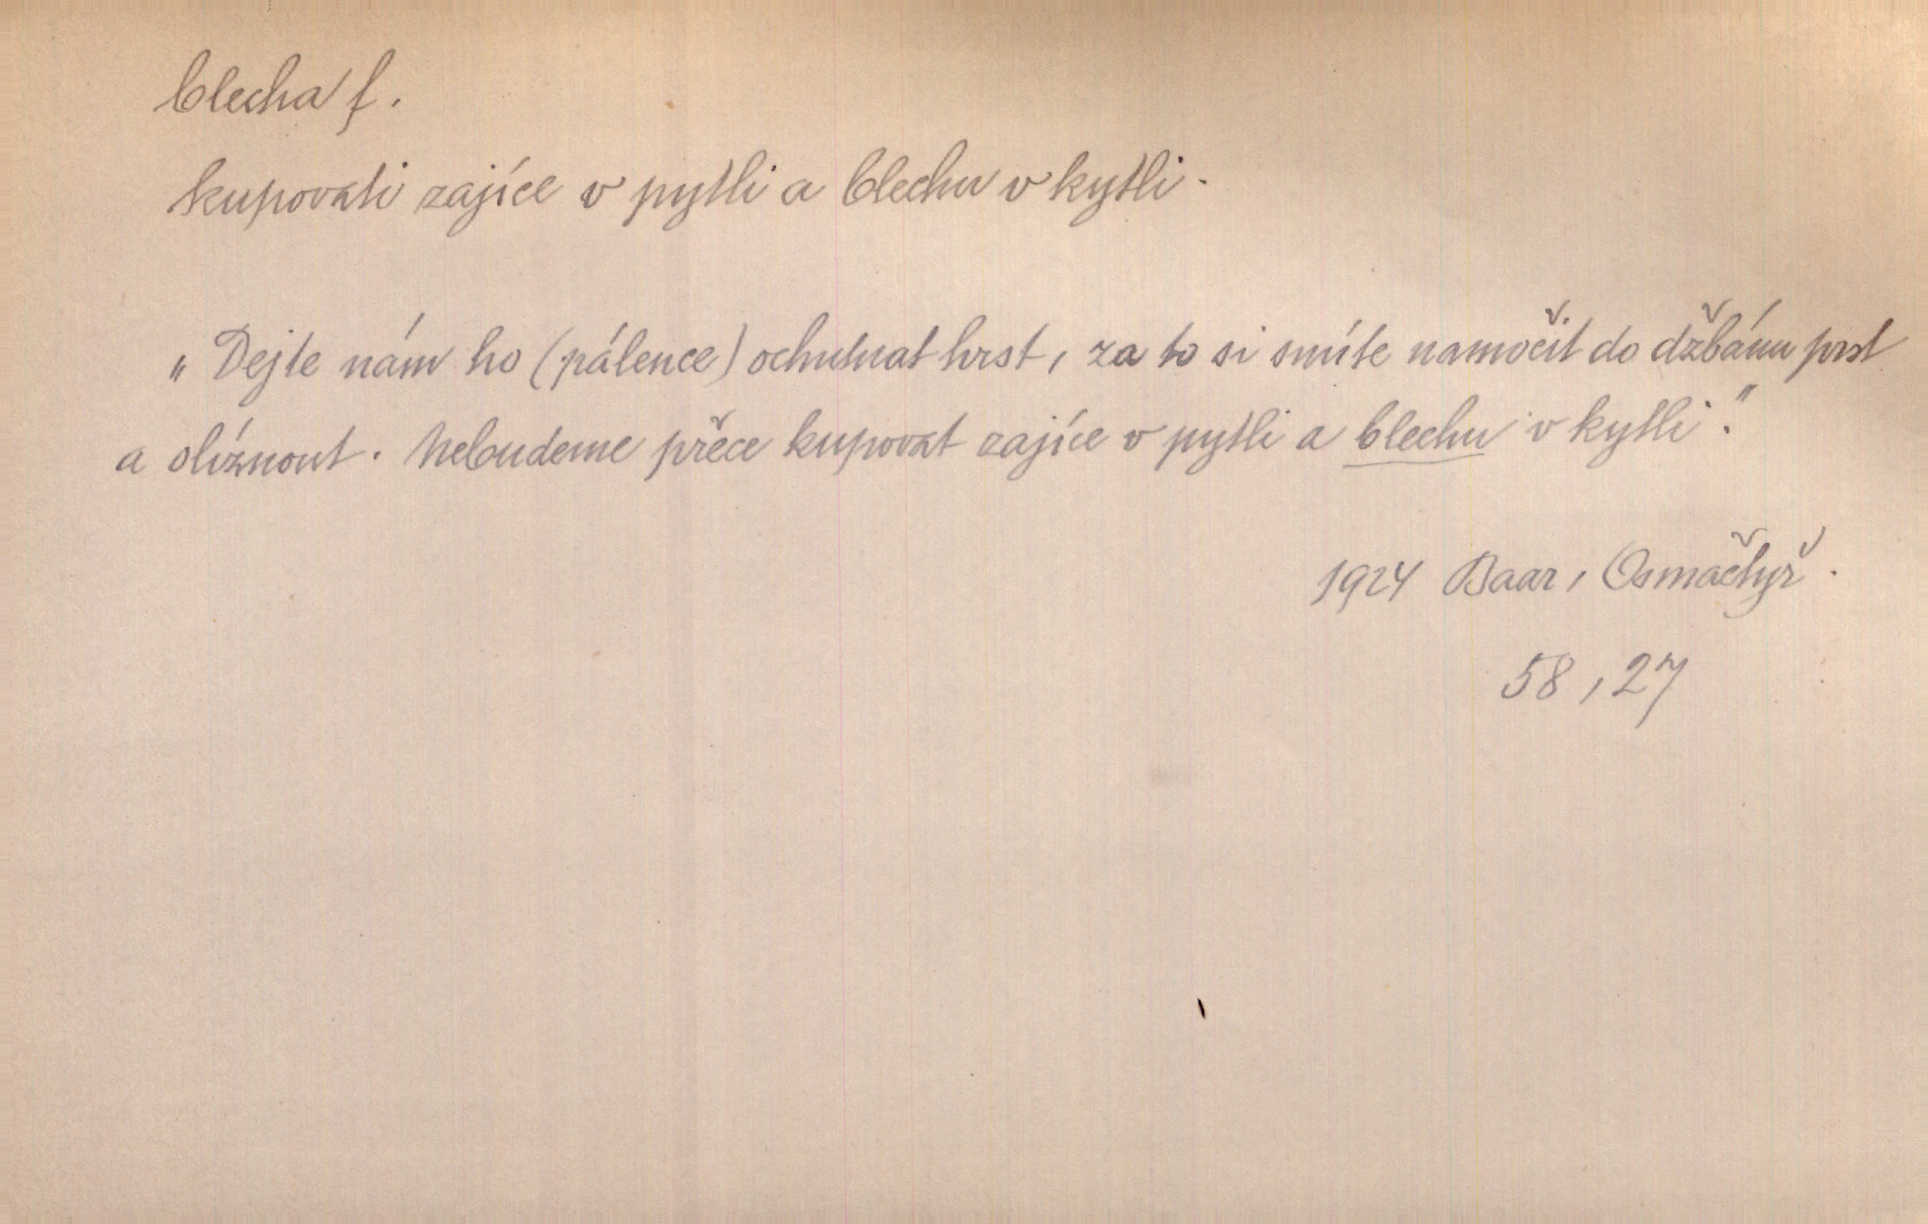 blecha f.
kupovati zajíce v pytli a blechu v kytli.
„Dejte nám ho (pálence) ochutnat hrst, za to si smíte namočit do džbánu prst
a olíznout. Nebudeme přece kupovat zajíce v pytli a blechu v kytli."
1924 Baar, Osmačtyř.
58, 27